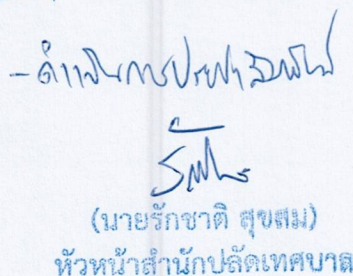 - ดำเนินการประชาสัมพันธ์
(นายรักชาติ สุขสม)
หัวหน้าสำนักปลัดเทศบาล